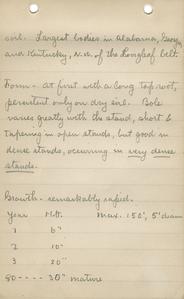 soil. Largest bodies in Alabama, Georgia
and Kentucky, N.W. of the Longleaf belt.
Form - At first with a long tap root,
persistent only on dry soil. Bole
varies greatly with the stand, short &
tapering in open stands, but good in
dense stands, occurring in very dense
stands.
Growth - remarkably rapid.
Year Ht. Max. 150', 5' diam
1 6"
2 10"
3 20"
80 - - - - 30" mature